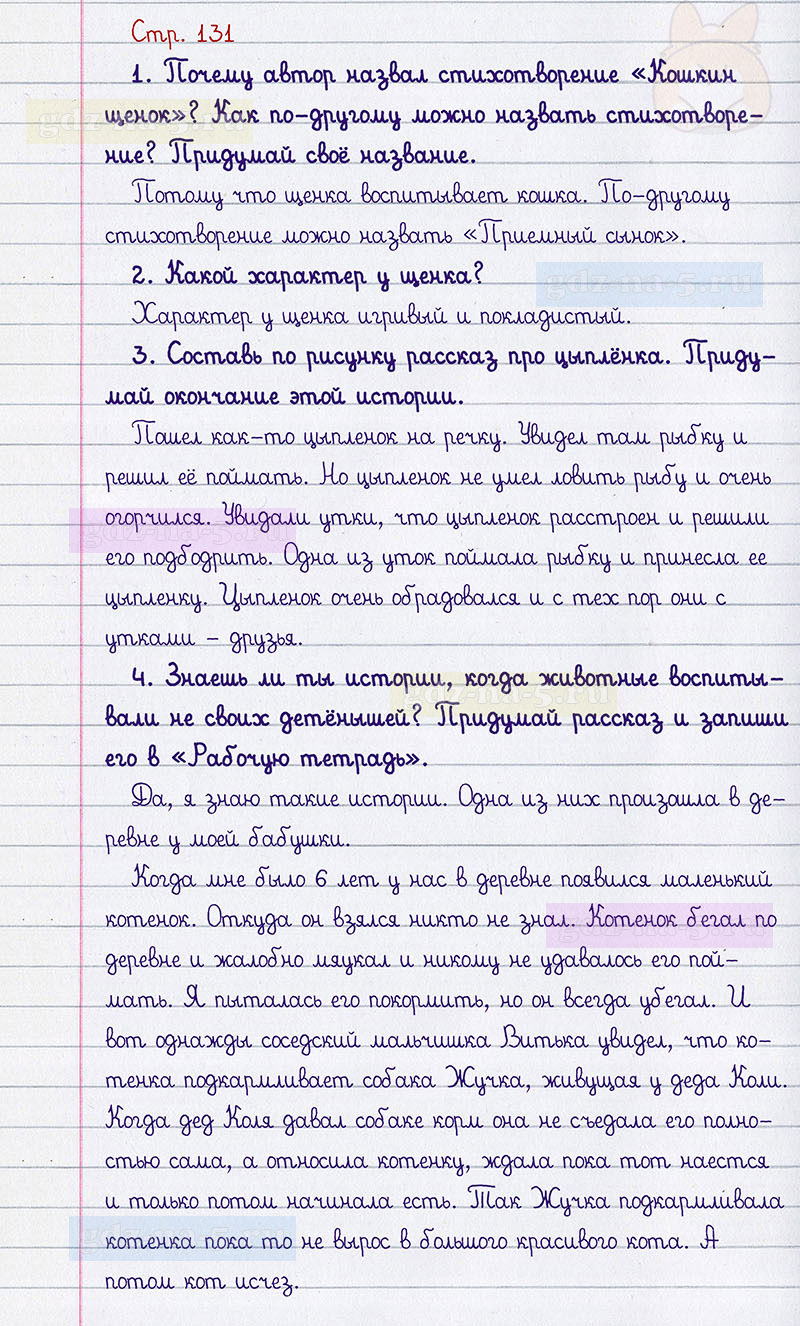 Стр. 131
1. Почему автор назвал стихотворение «Кошкин
щенок»? Как по-другому можно назвать стихотворе-
ние? Придумай своё название.
Потому что щенка воспитывает кошка. По-другому
стихотворение можно назвать «Приемный сынок».
2. Какой характер у щенка?
gdz-na-5.ru
Характер у щенка игривый и покладистый.
3. Составь по рисунку рассказ про цыплёнка. Приду-
май окончание этой истории.
Пошел как-то цыпленок на речку. Увидел там рыбку и
решил её поймать. Но цыпленок не умел ловить рыбу и очень
огорчился. Увидали утки, что цыпленок расстроен и решили
его подбодрить. Одна из уток поймала рыбку и принесла ее
цыпленку. Цыпленок очень обрадовался и с тех пор они с
утками – друзья.
4. Знаешь ли ты истории, когда животные воспиты-
вали не своих детёнышей? Придумай рассказ и запиши
его в «Рабочую тетрадь».
Да, я знаю такие истории. Одна из них произошла в де-
ревне у моей бабушки.
Когда мне было 6 лет у нас в деревне появился маленький
котенок. Откуда он взялся никто не знал. Котенок бегал по
деревне и жалобно мяукал и никому не удавалось его пой-
мать. Я пыталась его покормить, но он всегда убегал. И
вот однажды соседский мальчишка Витька увидел, что ко-
тенка подкармливает собака Жучка, живущая у деда Коли.
Когда дед Коля давал собаке корм она не съедала его полно-
стью сама, а относила котенку, ждала пока тот наестся
и только потом начинала есть. Так Жучка подкармливала
котенка пока то не вырос в большого красивого кота. А
потом кот исчез.